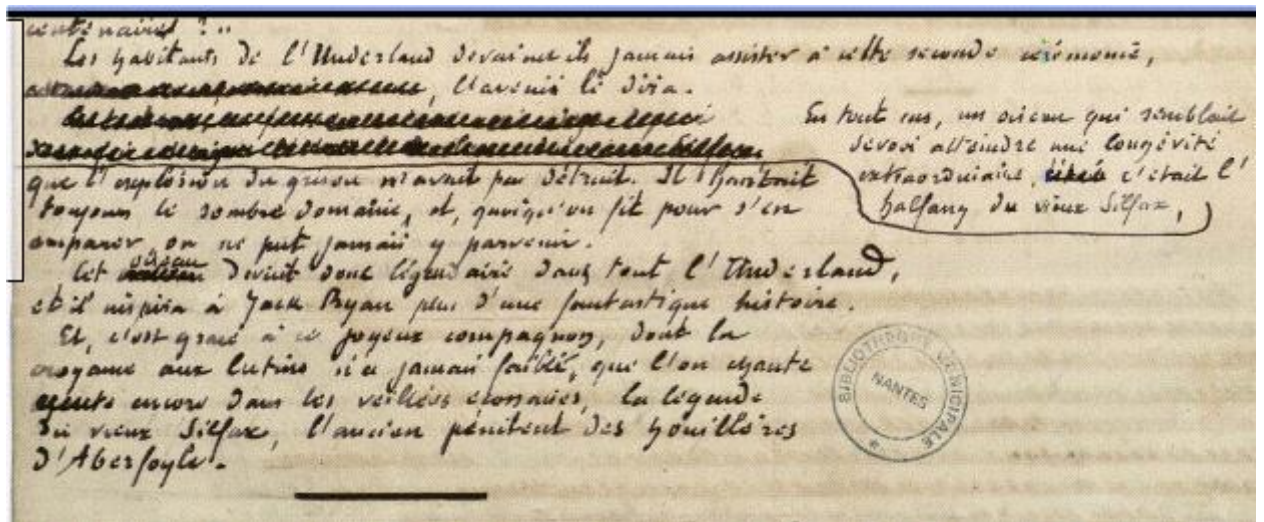 centenaires ?"
Les habitants de l'Underland devaient ils jamais assister à cette seconde cérémonie,
, l'avenir le dira.
En tout cas, un oiseau qui semblait
devoir atteindre une longévité
extraordinaire, c'était l'
halfang du vieux Silfax,
que l'explosion du grisou n'avait pas détruit. Il hantait
toujours le sombre domaine, et, quoiqu'on fît pour s'en
emparer, on ne put jamais y parvenir.
Cet oiseau devint donc légendaire dans tout l'Underland,
et il inspira à Jack Ryan plus d'une fantastique histoire.
Et, c'est grâce à ce joyeux compagnon, dont la
croyance aux lutins n'a jamais faibli, que l'on chante
encore dans les veillées écossaises, la légende
du vieux Silfax, l'ancien pénitent des houillères
d'Aberfoyle.
BIBLIOTHÈQUE MUNICIPALE
NANTES